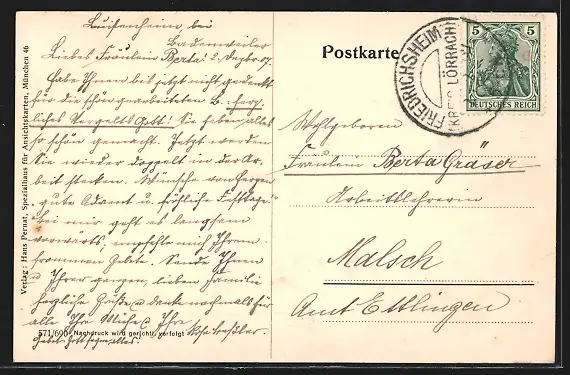 Luisenheim bei
Badenweiler
Liebes Fräulein Berta! 2. Dezbr. 07.
Habe Ihnen bis jetzt nicht gedankt
für die schön gearbeiteten B. herz-
liches Vergelts Gott! Sie haben alles
so schön gemacht. Jetzt werden
Sie wieder doppelt in der Ar-
beit stecken. Wünsche von Herzen
gute Advent u. fröhliche Festtage.
Bei mir geht es langsam
vorwärts, empfehle mich Ihrem
frommen Gebete. Sende Ihnen
u. Ihrer ganzen, lieben Familie
herzliche Grüße u. danke nochmals für
alle Ihre Mühe! Ihre
Verlag: Hans Pernat, Spezialhaus für Ansichtskarten, München 46
571/690 Nachdruck wird gerichtl. verfolgt
Postkarte
FRIEDRICHSHEIM
(KREIS LÖRRACH)
5 5
DEUTSCHES REICH
Wohlgeboren
Fräulein Berta Gräser
Arbeitslehrerin
Malsch
Amt Ettlingen